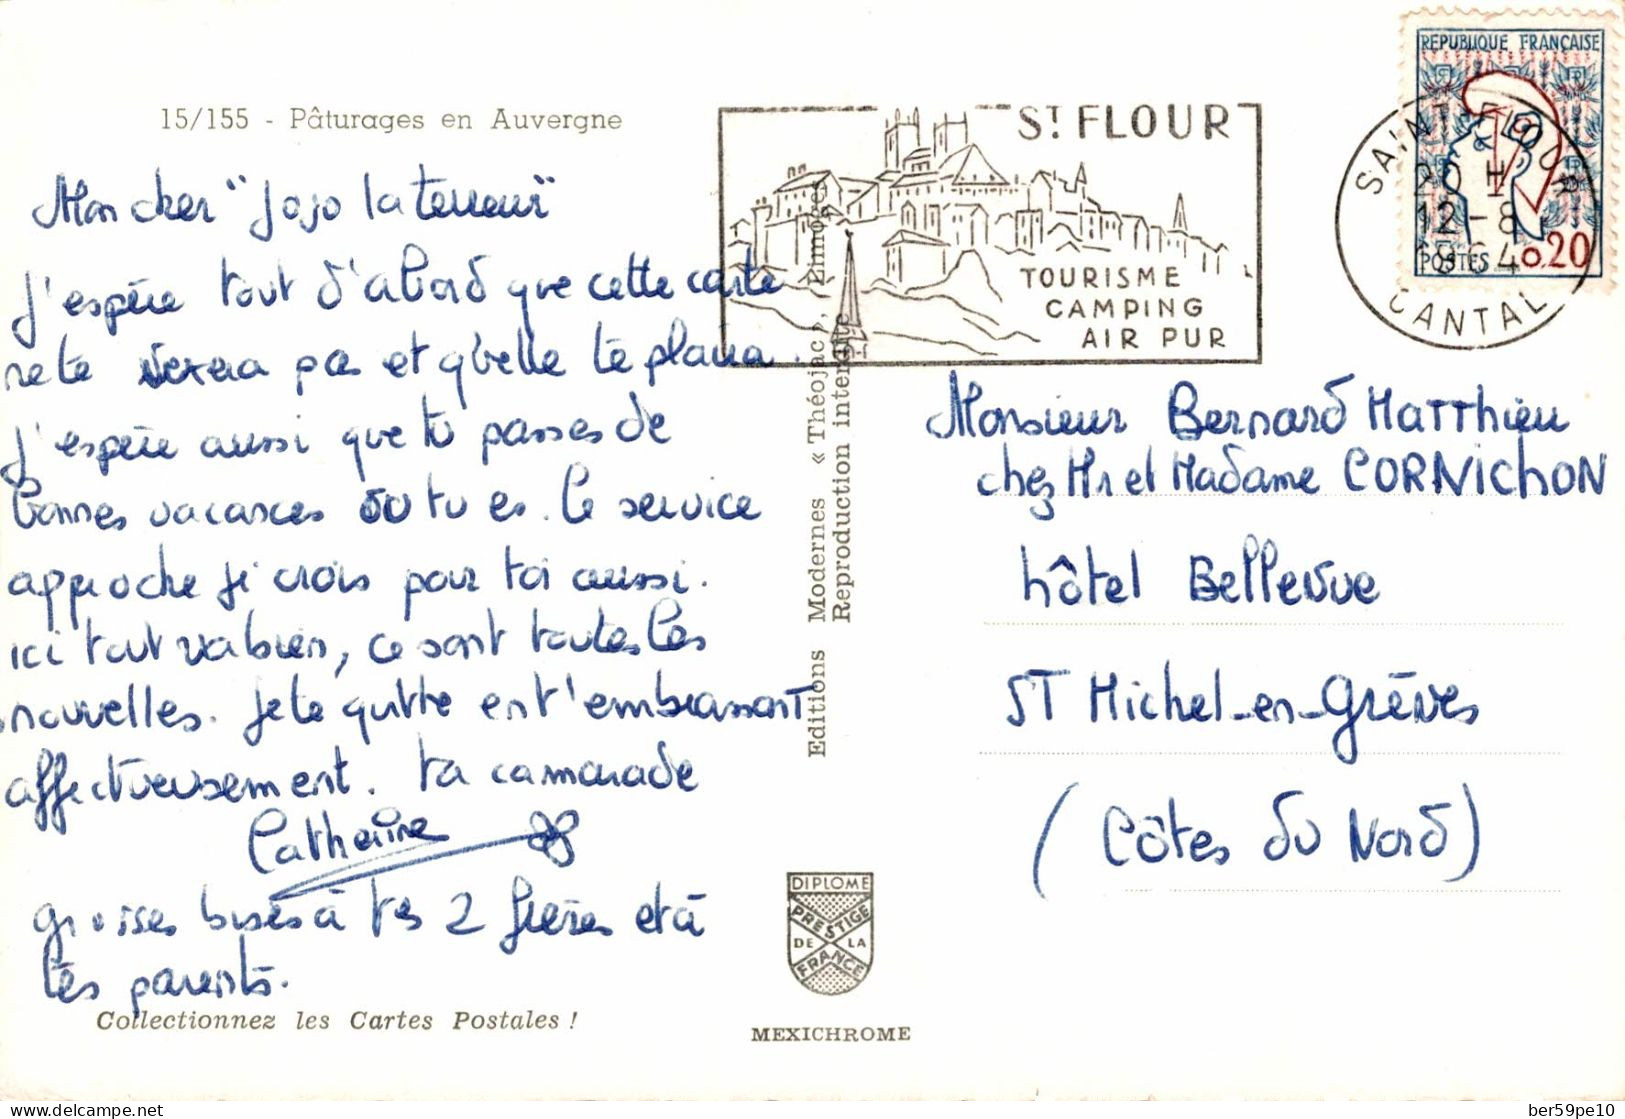 15/155 - Pâturages en Auvergne
Mon cher "Jojo la terreur"
J'espère tout d'abord que cette carte
ne te vexera pas et qu'elle te plaira.
J'espère aussi que tu passes de
bonnes vacances où tu es. le service
approche je crois pour toi aussi.
ici tout va bien, ce sont toutes les
nouvelles. Je te quitte en t'embrassant
affectueusement. ta camarade
Catherine
grosses bises à tes 2 frères et à
tes parents.
Collectionnez les Cartes Postales !
Editions Modernes « Théojac », Limoges
Reproduction interdite
DIPLOME
PRESTIGE
DE LA
FRANCE
MEXICHROME
ST FLOUR
TOURISME
CAMPING
AIR PUR
REPUBLIQUE FRANÇAISE
POSTES 0.20
SAINT-FLOUR
20 H
12-8
1964
CANTAL
Monsieur Bernard Matthieu
chez Mr et Madame CORNICHON
hôtel Bellevue
ST Michel-en-Grèves
(Côtes du Nord)
delcampe.net
ber59pe10